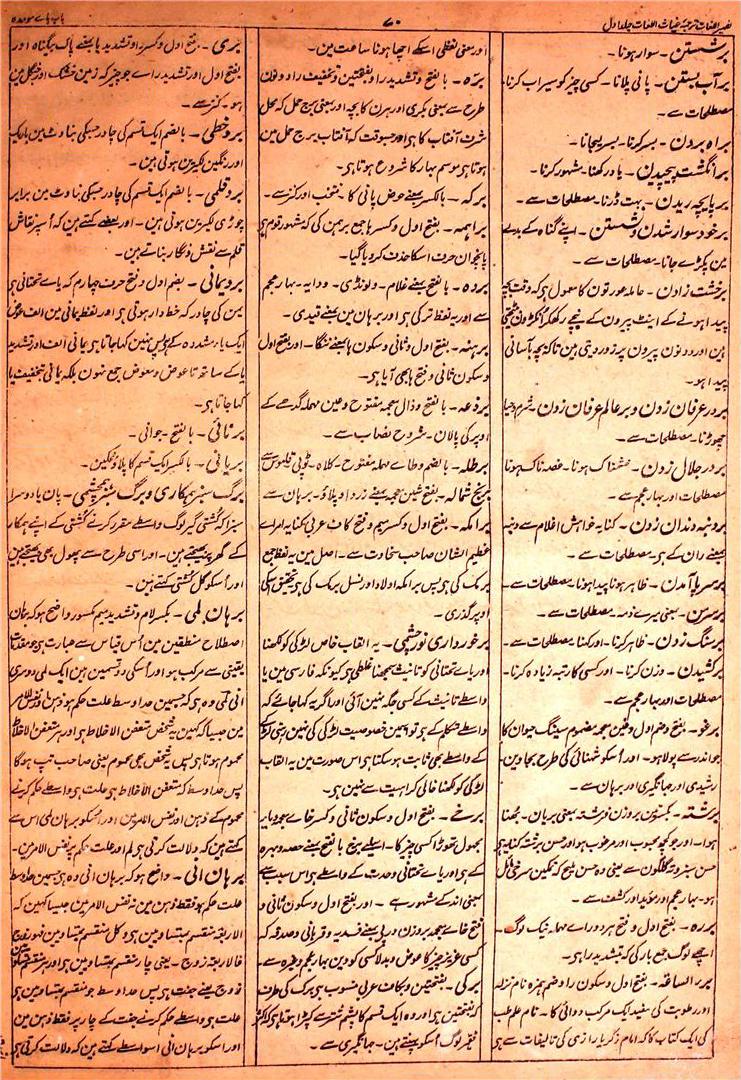 نصیر اللغات ترجمۂ غیاث اللغات جلد اول
۷۰
باب بائے موحدہ
برشستن۔ سوار ہونا۔
برآب بستن۔ پانی پلانا۔ کسی چیز کو سیراب کرنا۔
مصطلحات سے۔
براہ بردن۔ بسر کرنا۔ بسر لیجانا۔
برانگشت پیچیدن۔ یاد رکھنا۔ مشہور کرنا۔
برپایچہ ریدن۔ بہت ڈرنا۔ مصطلحات سے۔
برخود سوار شدن و نشستن۔ اپنے گناہ کے بدلے
مین پکڑے جانا۔ مصطلحات سے۔
برخشت زادن۔ حاملہ عورتون کا معمول ہی کہ وقت بچہ
پیدا ہونے کے اینٹ پیرون کے نیچے رکھکر اکڑون بیٹھتی
ہین اور دونون پیرون پر زور دیتی ہین تاکہ بچہ باسانی
پیدا ہو۔
بردر عرفان زدن و بر عالم عرفان زدن۔ شرم و حیا
چھوڑنا۔ مصطلحات سے۔
بردر جلال زدن۔ خشمناک ہونا۔ غصہ ناک ہونا
مصطلحات اور بہار عجم سے۔
بر دنبہ دندان زدن۔ کنایہ خواہش اغلام سے دنبہ
بمعنے ران کے ہی مصطلحات سے۔
برسر پا آمدن۔ ظاہر ہونا پیدا ہونا مصطلحات سے۔
برسر من۔ یعنی میرے ذمہ مصطلحات سے۔
برسنگ زدن۔ ظاہر کرنا۔ اور کہنا مصطلحات سے۔
برکشیدن۔ وزن کرنا۔ اور کسی کا رتبہ زیادہ کرنا۔
مصطلحات اور بہار عجم سے۔
برغو۔ بفتح و ضم اول و غین معجمہ مضموم سینگ حیوان کا
جو اندر سے پولا ہو۔ اور اسکو شہنائی کی طرح بجاوین۔
رشیدی اور جہانگیری اور برہان سے۔
برشتہ۔ بکسرتین بروزن فرشتہ بمعنی بریان۔ بھنا
ہوا۔ اور جو کچھ محبوب اور مرغوب ہو اور حسن برشتہ کنایہ ہی
حسن سبزہ و گلگون سے یعنی وہ حسن ملیح کہ نمکین سرخی مائل
ہو۔ بہار عجم اور موید اور کشف سے۔
بررہ۔ بفتح اول و فتح ہر دو راے مہملہ نیک لوگ۔
اچھے لوگ جمع بار کی کہ بتشدید را ہی۔
برء الساعۃ۔ بفتح اول و سکون را و ضم ہمزہ نام نزلہ
اور رطوبت کی سفید ایک مرکب دوائی کا۔ نام علم طب
کی ایک کتاب کا کہ امام زکریا رازی کی تالیفات سے ہی
اور معنی لفظی اسکے اچھا ہونا ساعت مین۔
برہ۔ بافتح و تشدید را و بفتحتین و تخفیف را دونون
طرح سے بمعنی بکری اور ہرن کا بچہ اور معنی برج حمل کہ محل
شرف آفتاب کا ہی اور جسوقت کہ آفتاب برج حمل مین
ہوتا ہی موسم بہار کا شروع ہوتا ہی۔
برکہ۔ بالکسر بمعنے حوض پانی کا۔ منتخب اور کنز سے۔
براہمہ۔ بفتح اول و کسر ہا جمع برہمن کی کہ مشہور قوم ہی
پانچوان حرف اسکا حذف کر دیا گیا۔
بردہ۔ بافتح بمعنے غلام۔ ولونڈی۔ ودایہ۔ بہار عجم
سے اور یہ لفظ ترکی ہی اور برہان مین بمعنے قیدی۔
برہنہ۔ بفتح اول و ثانی و سکون ہا بمعنے ننگا۔ اور بفتح اول
و سکون ثانی و فتح ہا بھی آیا ہی۔
برذعہ۔ بافتح و ذال معجمہ مفتوح و عین مہملہ گدھے کے
اوپر کی پالان۔ شروح نصاب سے۔
برطلہ۔ بالضم و طاے مہملہ مفتوح۔ کلاہ۔ ٹوپی قاموس سے
برنج شمالہ۔ بفتح شین معجمہ بمعنے زردا و پلاؤ۔ برہان سے
برامکہ۔ بفتح اول و کسر میم و فتح کاف عربی کنایہ امراے
عظیم الشان صاحب سخاوت سے۔ اصل مین یہ لفظ جمع
برمک کی ہی پس برامکہ اولاد اور نسل برمک کی ہی تحقیق اسکی
اوپر گذری۔
برخورداری نور چشمی۔ یہ القاب خاص لڑکی کو لکھنا
اور یاے تحتانی کو تانیث سمجھنا غلطی ہی کیونکہ فارسی مین یا
واسطے تانیث کے کسی جگہ نہین آئی اور اگر یہ کہا جائے کہ
واسطے متکلم کے ہی تو اسمین خصوصیت لڑکی کی نہین رہتی لڑکے
کے واسطے بھی ثابت ہو سکتا ہی اس صورت مین یہ القاب
لڑکی کو لکھنا خالی کراہیت سے نہین ہی۔
برخے۔ بفتح اول و سکون ثانی و کسر خاے معجمہ و یاے
مجہول تھوڑا کسی چیز کا۔ اسلیے برخ بافتح بمعنے حصہ و بہرہ
کے ہی اور یاے تحتانی وحدت کے واسطے ہی اس سبب سے
بمعنی اندک مشہور ہے۔ اور بفتح اول و سکون ثانی و
فتح خاے معجمہ بروزن دربی بمعنے فدیہ و قربانی و صدقہ کہ
کسی عزیز چیز کا عوض و بدلا کسی کو دین بہار عجم وغیرہ سے۔
برکی۔ بفتحتین و کاف عربی منسوب ہی برک کی طرف
کہ بفتحتین ہی اور وہ ایک قسم کا پشم شتر سے کپڑا ہوتا ہی کہ اکثر
فقیر لوگ اسکو پہنتے ہین۔ جہانگیری سے۔
بری۔ بفتح اول و کسر را و تشدید یا بمعنے پاک بیگناہ اور
بفتح اول اور تشدید راے جو چیز کہ زمین خشک اور جنگل مین
ہو۔ کنز سے۔
بردخطی۔ بالضم ایک قسم کی چادر جسکی بناوٹ مین باریک
اور رنگین لکیرین ہوتی ہین۔
بردقلمی۔ بالضم ایک قسم کی چادر جسکی بناوٹ مین برابر
چوڑی لکیرین ہوتی ہین۔ اور بعضے کہتے ہین کہ اسپر نقاش
قلم سے نقش و نگار بناتے ہین۔
بردیمانی۔ بضم اول و فتح حرف چہارم کہ یاے تحتانی ہی
یمن کی چادر کہ خط دار ہوتی ہی اور لفظ یمانی مین الف عوض
ایک یاے مشددہ کے ہی پس نہین کہا جاتا ہی یمانی الف اور تشدید
یا کے ساتھ تا عوض و معوض جمع نہون بلکہ یمانی بتخفیف یا
کہا جاتا ہی۔
برنائی۔ بافتح۔ جوانی۔
بریانی۔ بالکسر ایک قسم کا پلاؤ نمکین۔
برگ سبز ہمکاری و برگ سبز ہم چشمی۔ پان یا دوسرا
سبزا کہ کشتی گیر لوگ واسطے مقرر کرنے کشتی کے اپنے ہمکار
کے گھر پر بھیجتے ہین۔ اور اسی طرح سے پھول بھی بھیجتے ہین
اور اسکو گل کشتی کہتے ہین۔
برہان لمی۔ بکسر لام و تشدید میم مکسور واضح ہو کہ برہان
اصطلاح منطقین مین اس قیاس سے عبارت ہی جو مقدمات
یقینی سے مرکب ہو اور اسکی دو قسمین ہین ایک لمی دوسری
انی لمی وہ ہی کہ جسمین حد اوسط علت حکم ہو ذہن اور نفس الامر
مین جیسا کہ کہین یہ شخص متعفن الاخلاط ہی اور ہر متعفن الاخلاط
محموم ہوتا ہی پس یہ شخص بھی محموم یعنی صاحب تپ ہوگا
پس حد اوسط کہ متعفن الاخلاط ہی علت ہی واسطے حکم کرنے
محموم کے ذہن اور نفس الامر مین اور اسکو برہان لمی اس سے
کہتے ہین کہ دلالت کرتی ہی لم اور علت حکم پر نفس الامر مین۔
برہان انی۔ واضح ہو کہ برہان انی وہ ہی جسمین حد اوسط
علت حکم ہو فقط ذہن مین نہ نفس الامر مین جیسا کہین کہ
الاربعۃ منقسم بمتساویین ہی وکل منقسم بمتساویین فہو زوج
فالاربعۃ زوج۔ یعنی چار منقسم بتساویین ہی اور ہر منقسم بتساویین
زوج یعنے جفت ہی پس حد اوسط جو منقسم بتساویین ہی
علت ہی واسطے حکم کرنے جفت کے چار پر فقط ذہن مین
اور اسکو برہان انی اسواسطے کہتے ہین کہ دلالت کرتی ہی